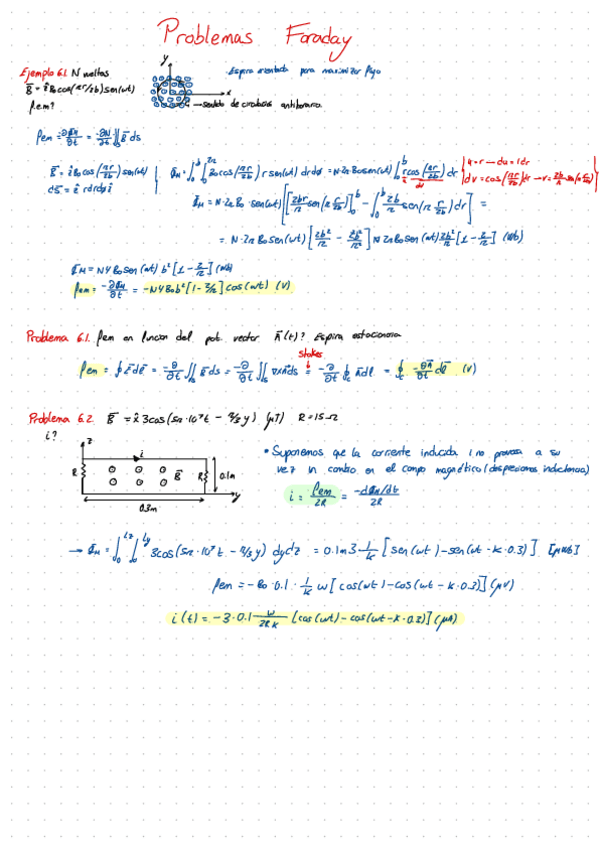 Problemas Faraday
Ejemplo 6.1. N vueltas
B̄ = ẑ B₀ cos(πr/2b) sen(wt)
fem?
y
x
Espira orientada para maximizar flujo
sentido de circulación antihorario.
fem = -∂Φm/∂t = -∂N/∂t ∬ B̄ ds
B̄ = ẑ B₀ cos(πr/2b) sen(wt)
ds̄ = ẑ r dr dφ
Φm = ∫₀ᵇ ∫₀²ᵖⁱ B₀ cos(πr/2b) r sen(wt) dr dφ = N·2π B₀ sen(wt) ∫₀ᵇ r cos(πr/2b) dr
u = r → du = 1dr
dv = cos(πr/2b) dr → v = 2b/π sen(π r/2b)
Φm = N·2π B₀ · sen(wt) [[2br/π sen(π r/2b)]₀ᵇ - ∫₀ᵇ 2b/π sen(π r/2b) dr] =
= N·2π B₀ sen(wt) [2b²/π - 2b²/π] N 2π B₀ sen(wt) 2b²/π [1 - 2/π] (Wb)
Φm = N4 B₀ sen(wt) b² [1 - 2/π] (Wb)
fem = -∂Φm/∂t = -N4 B₀ b² [1 - 2/π] cos(wt) (V)
Problema 6.1. fem en funcion del pot. vector Ā(t)? Espira estacionaria
Stokes
fem = ∮ Ē dl̄ = -∂/∂t ∬ B̄ ds = -∂/∂t ∬ ∇xĀ ds = -∂/∂t ∮ Ā dl = ∮ -∂Ā/∂t dl̄ (V)
Problema 6.2. B̄ = x̂ 3cos(5π·10⁷t - π/3 y) (μT) R = 15Ω
i?
z
i
R
B̄
R
0.1m
y
0.3m
• Suponemos que la corriente inducida i no provoca a su
vez un cambio en el campo magnético (despreciamos inductancia)
i = fem/2R = -dΦm/dt / 2R
→ Φm = ∫₀ᴸᶻ ∫₀ᴸʸ 3cos(5π·10⁷t - π/3 y) dydz = 0.1m 3 1/k [sen(wt) - sen(wt - k·0.3)] [μWb]
fem = -B₀·0.1·1/k w [cos(wt) - cos(wt - k·0.3)] (μV)
i(t) = -3·0.1 w/2Rk [cos(wt) - cos(wt - k·0.3)] (μA)